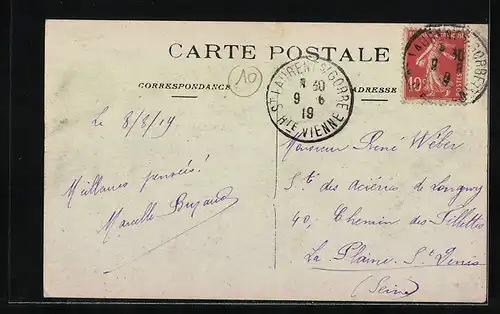 CARTE POSTALE
CORRESPONDANCE
ADRESSE
10
ST LAURENT S/GORRE
7 30
9 - 6
19
HTE VIENNE
10c
POSTES
Le 8/8/19
Meilleures pensées!
Marcelle
Monsieur René Wéber
Sté des aciéries de Longwy
40, Chemin des Fillettes
La Plaine St Denis
(Seine)